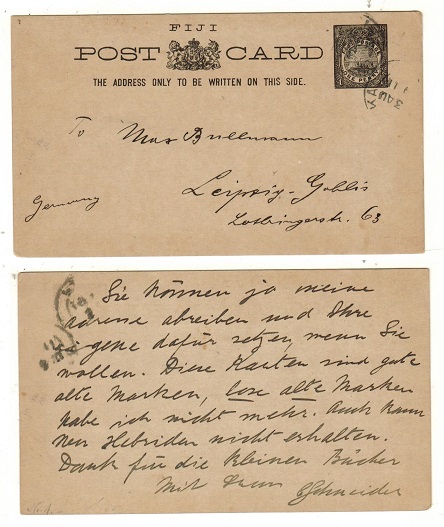 FIJI
POST CARD
THE ADDRESS ONLY TO BE WRITTEN ON THIS SIDE.
To
Max Brellmann
Germany
Leipzig-Gohlis
Lothringerstr. 63
Sie können ja meine
adresse abreiben und Ihre
eigene dafür setzen, wenn Sie
wollen. Diese Karten sind gute
alte Marken, lose alte Marken
habe ich nicht mehr. Auch kann
neu Hebriden nicht erhalten.
Dank für die kleinen Bücher
Mit
Schneider